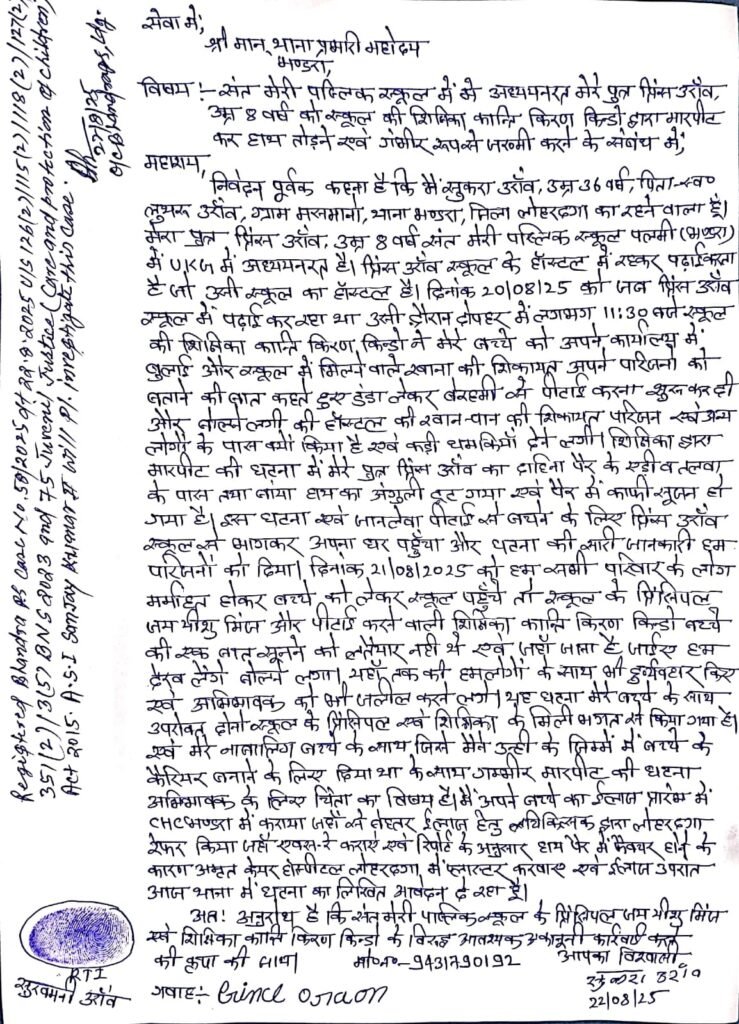 सेवा में,
श्री मान् थाना प्रभारी महोदय
भण्डरा,
विषय :- संत मेरी पब्लिक स्कूल में मे अध्ययनरत मेरे पुत्र प्रिंस उराँव,
उम्र 8 वर्ष को स्कूल की शिक्षिका कान्ति किरण किन्डो द्वारा मारपीट
कर हाथ तोड़ने एवं गंभीर रूप से जख्मी करने के संबंध में,
महाशय,
निवेदन पूर्वक कहना है कि मैं सुकरा उराँव, उम्र 36 वर्ष, पिता-स्व०
लुथरू उराँव, ग्राम मसमानो, थाना भण्डरा, जिला लोहरदगा का रहने वाला हूँ।
मेरा पुत्र प्रिंस उराँव, उम्र 8 वर्ष संत मेरी पब्लिक स्कूल पलमी (भण्डरा)
में UKG में अध्ययनरत है। प्रिंस उराँव स्कूल के हॉस्टल में रहकर पढ़ाई करता
है जो उसी स्कूल का हॉस्टल है। दिनांक 20/08/25 को जब प्रिंस उराँव
स्कूल में पढ़ाई कर रहा था उसी दौरान दोपहर में लगभग 11:30 बजे स्कूल
की शिक्षिका कान्ति किरण किन्डो ने मेरे बच्चे को अपने कार्यालय में
बुलाई और स्कूल में मिलने वाले खाना की शिकायत अपने परिजनो को
बताने की बात कहते हुए डंडा लेकर बेरहमी से पीटाई करना शुरू कर दी
और बोलने लगी की हॉस्टल की खान-पान की शिकायत परिजन एवं अन्य
लोगों के पास क्यों किया है एवं कड़ी धमकियाँ देने लगी। शिक्षिका द्वारा
मारपीट की घटना में मेरे पुत्र प्रिंस उराँव का दाहिना पैर के एड़ी व तलवा
के पास तथा बांया हाथ का अंगुली टूट गया एवं पैर में काफी सूजन हो
गया है। इस घटना एवं जानलेवा पीटाई से बचने के लिए प्रिंस उराँव
स्कूल से भागकर अपना घर पहुँचा और घटना की सारी जानकारी हम
परिजनों को दिया। दिनांक 21/08/2025 को हम सभी परिवार के लोग
मर्माहत होकर बच्चे को लेकर स्कूल पहुँचे तो स्कूल के प्रिंसिपल
जय यीशु मिंज और पीटाई करने वाली शिक्षिका कान्ति किरण किन्डो बच्चे
की एक बात सुनने को तैयार नही थे एवं जहाँ जाना है जाईए हम
देख लेंगे बोलने लगा। यहाँ तक की हमलोगों के साथ भी दुर्व्यवहार किए
एवं अभिभावक को भी जलील करने लगे। यह घटना मेरे बच्चे के साथ
उपरोक्त दोनो स्कूल के प्रिंसिपल एवं शिक्षिका के मिली भगत से किया गया है।
एवं मेरे नाबालिग बच्चे के साथ जिसे मैने उन्ही के जिम्में में बच्चे के
कैरियर बनाने के लिए दिया था के साथ गम्भीर मारपीट की घटना
अभिभावक के लिए चिंता का विषय है। मैं अपने बच्चे का ईलाज प्रारंभ में
CHC भण्डरा में कराया जहाँ से बेहतर ईलाज हेतु चिकित्सक द्वारा लोहरदगा
रेफर किया जहाँ एक्स-रे कराए एवं रिपोर्ट के अनुसार हाथ पैर में फ्रैक्चर होने के
कारण अमृत केयर होस्पीटल लोहरदगा, में प्लास्टर करवाए एवं ईलाज उपरांत
आज थाना में घटना का लिखित आवेदन दे रहा हूँ।
अतः अनुरोध है कि संत मेरी पाब्लिक स्कूल के प्रिंसिपल जय यीशु मिंज
एवं शिक्षिका कान्ति किरण किन्डो के विरुद्ध आवश्यक कानूनी कार्रवाई करने
की कृपा की जाय। मो० न०- 9431790192 आपका विश्वासी
सुकरा उराँव
22/08/25
RTI
सुखमनी उराँव
गवाह :- Prince Oraon
Registered Bhandra PS Case No. 50/2025 dt 22.8.2025 U/S 126(2)/115(2)/118(2)/127(2)/
351(2)/3(5) BNS 2023 and 75 Juvenil Justice (Care and protection of children)
Act 2015. A.S.I Sanjay Kumar II will Pl. investigate this case.
22/8/25
O/C Bhandra PS, Ldg.